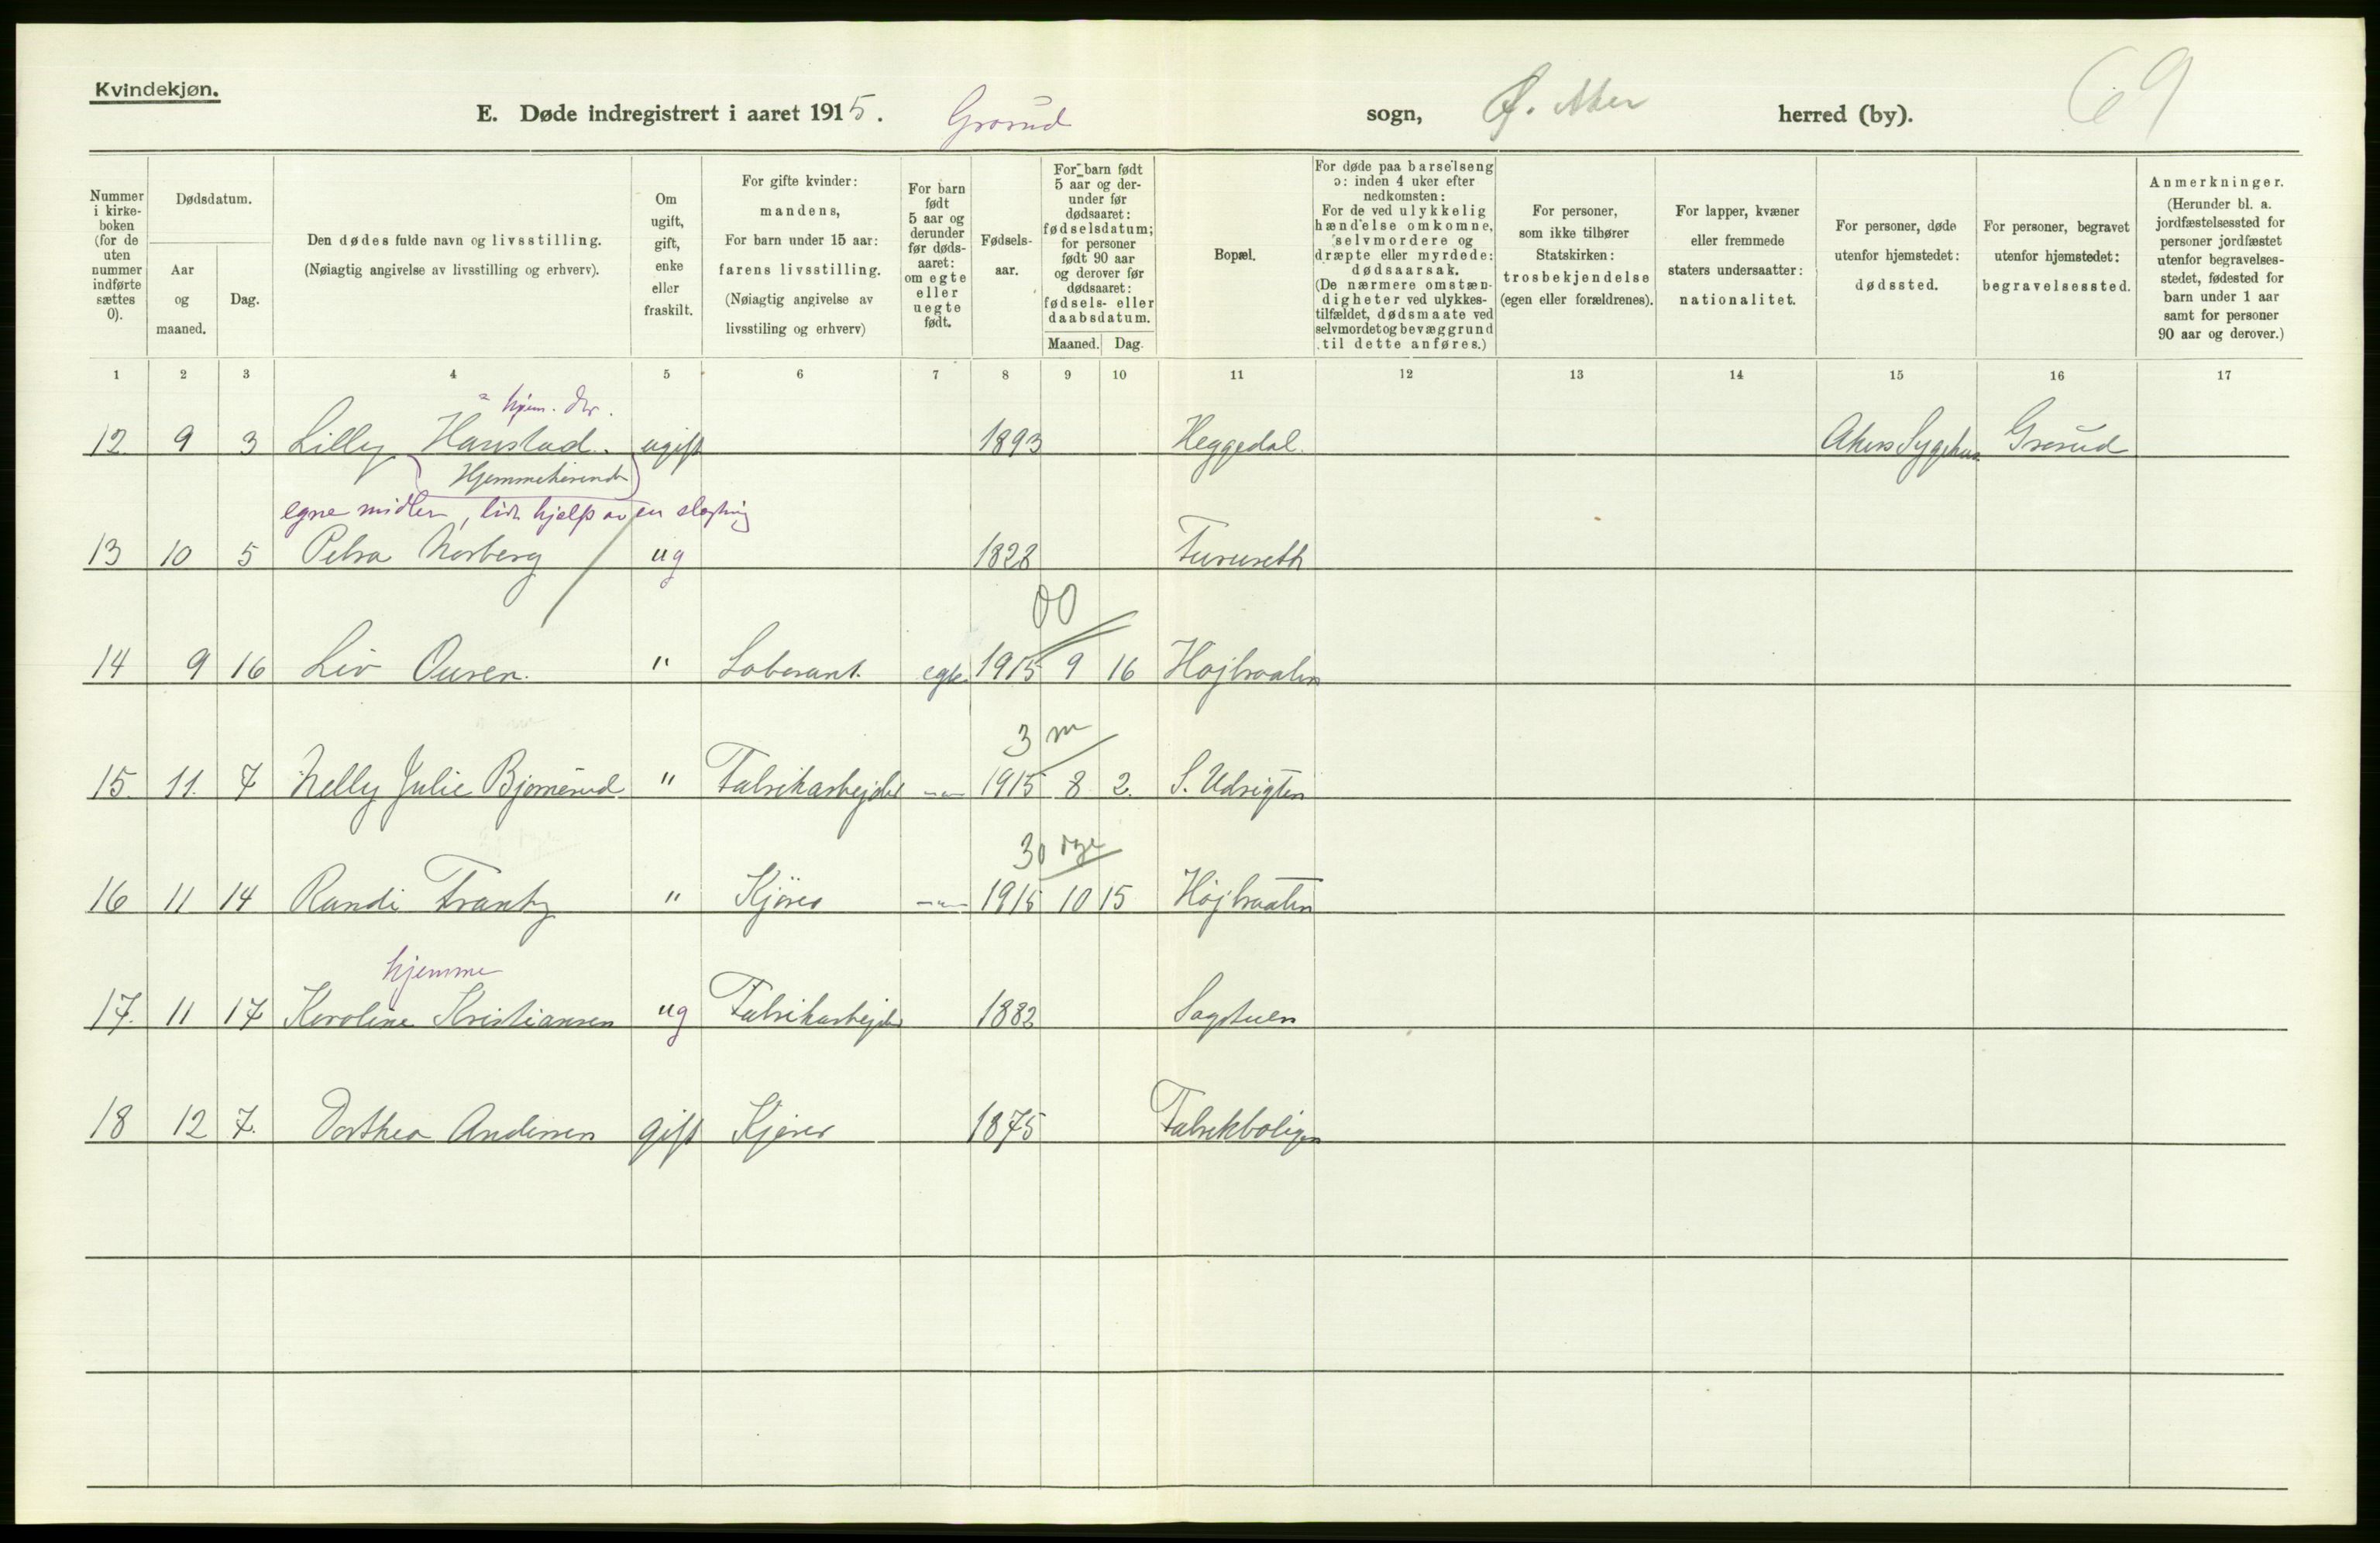 Kvindekjøn.
E. Døde indregistrert i aaret 1915. Grorud sogn, Ø. Aker herred (by). 69
Nummer i kirkeboken (for de uten nummer indførte sættes 0).
Dødsdatum.
Aar og maaned.
Dag.
Den dødes fulde navn og livsstilling.
(Nøiagtig angivelse av livsstilling og erhverv).
Om ugift, gift, enke eller fraskilt.
For gifte kvinder: mandens,
For barn under 15 aar: farens livsstilling.
(Nøiagtig angivelse av livsstiling og erhverv)
For barn født 5 aar og derunder før dødsaaret: om egte eller uegte født.
Fødselsaar.
For barn født 5 aar og derunder før dødsaaret: fødselsdatum; for personer født 90 aar og derover før dødsaaret: fødsels- eller daabsdatum.
Maaned. Dag.
Bopæl.
For døde paa barselseng ɔ: inden 4 uker efter nedkomsten:
For de ved ulykkelig hændelse omkomne, selvmordere og dræpte eller myrdede: dødsaarsak.
(De nærmere omstændigheter ved ulykkestilfældet, dødsmaate ved selvmordet og bevæggrund til dette anføres.)
For personer, som ikke tilhører Statskirken: trosbekjendelse (egen eller forældrenes).
For lapper, kvæner eller fremmede staters undersaatter: nationalitet.
For personer, døde utenfor hjemstedet: dødssted.
For personer, begravet utenfor hjemstedet: begravelsessted.
Anmerkninger.
(Herunder bl. a. jordfæstelsessted for personer jordfæstet utenfor begravelsesstedet, fødested for barn under 1 aar samt for personer 90 aar og derover.)
1 2 3 4 5 6 7 8 9 10 11 12 13 14 15 16 17
hjem. dtr.
12. 9 3 Lilly Hanstad. ugift 1893 Heggedal. Akers Sygehus Grorud
Hjemmeværende
egne midler, lidt hjelp av en slegtning
13 10 5 Petra Norberg ug 1828 Furuseth
00
14 9 16 Liv Ousen. " Laborant. egte 1915 9 16 Højbraaten
3 m
15. 11. 7 Nelly Julie Bjørnerud " Fabrikarbejder -"- 1915 8 2. S. Udsigten
30 dge
16 11 14 Randi Frantz " Kjører -"- 1915 10 15 Højbraaten
hjemme
17. 11 17 Karoline Kristiansen ug Fabrikarbejder 1882 Sagstuen
18 12 7. Dorthea Andersen gift Kjører 1875 Fabrikboligen